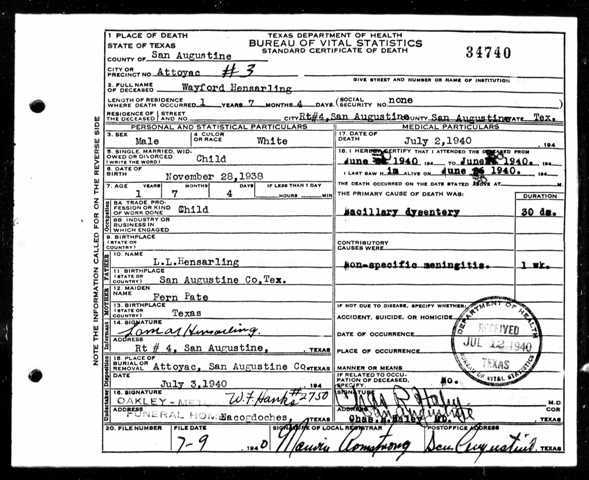 1 PLACE OF DEATH
STATE OF TEXAS
TEXAS DEPARTMENT OF HEALTH
BUREAU OF VITAL STATISTICS
STANDARD CERTIFICATE OF DEATH
34740
COUNTY OF San Augustine
CITY OR PRECINCT NO. Attoyac #3
GIVE STREET AND NUMBER OR NAME OF INSTITUTION
2. FULL NAME OF DECEASED Wayford Hensarling
LENGTH OF RESIDENCE WHERE DEATH OCCURRED 1 YEARS 7 MONTHS 4 DAYS
SOCIAL SECURITY NO. none
RESIDENCE OF THE DECEASED STREET AND NO. CITY Rt#4, San Augustine COUNTY San Augustine STATE Tex.
PERSONAL AND STATISTICAL PARTICULARS
MEDICAL PARTICULARS
3. SEX Male
4. COLOR OR RACE White
17. DATE OF DEATH July 2,1940
5. SINGLE, MARRIED, WIDOWED OR DIVORCED (WRITE THE WORD) Child
18. I HEREBY CERTIFY THAT I ATTENDED THE DECEASED FROM
June 1940 194 TO June 1940. 194
I LAST SAW H im ALIVE ON June 1940. 194
THE DEATH OCCURRED ON THE DATE STATED ABOVE AT M.
6. DATE OF BIRTH November 28,1938
7. AGE YEARS 1 MONTHS 7 DAYS 4 IF LESS THAN 1 DAY HOURS MIN
THE PRIMARY CAUSE OF DEATH WAS:
DURATION
8A TRADE PROFESSION OR KIND OF WORK DONE Child
Bacillary dysentery 30 ds.
8B INDUSTRY OR BUSINESS IN WHICH ENGAGED
9. BIRTHPLACE (STATE OR COUNTRY)
CONTRIBUTORY CAUSES WERE:
10. NAME L.L.Hensarling
Non-specific meningitis. 1 wk.
11 BIRTHPLACE (STATE OR COUNTRY) San Augustine Co,Tex.
12. MAIDEN NAME Fern Pate
IF NOT DUE TO DISEASE, SPECIFY WHETHER:
13. BIRTHPLACE (STATE OR COUNTRY) Texas
ACCIDENT, SUICIDE, OR HOMICIDE
14. SIGNATURE Lamar Hensarling.
DATE OF OCCURRENCE
ADDRESS Rt # 4, San Augustine, TEXAS
PLACE OF OCCURRENCE
DEPARTMENT OF HEALTH
RECEIVED
JUL 12 1940
TEXAS
BUREAU OF VITAL STATISTICS
PLACE OF BURIAL OR REMOVAL Attoyac, San Augustine Co TEXAS
MANNER OR MEANS
DATE July 3,1940 194
IF RELATED TO OCCUPATION OF DECEASED, SPECIFY no.
SIGNATURE W.F. Hanks #2750
OAKLEY-
FUNERAL HOME
M.D
COR
ADDRESS Nacogdoches, TEXAS
ADDRESS MD. TEXAS
20. FILE NUMBER
FILE DATE 7-9 1940
SIGNATURE OF LOCAL REGISTRAR Armstrong
POSTOFFICE ADDRESS San Augustine, TEXAS
NOTE THE INFORMATION CALLED FOR ON THE REVERSE SIDE
Occupation
FATHER
MOTHER
Informant